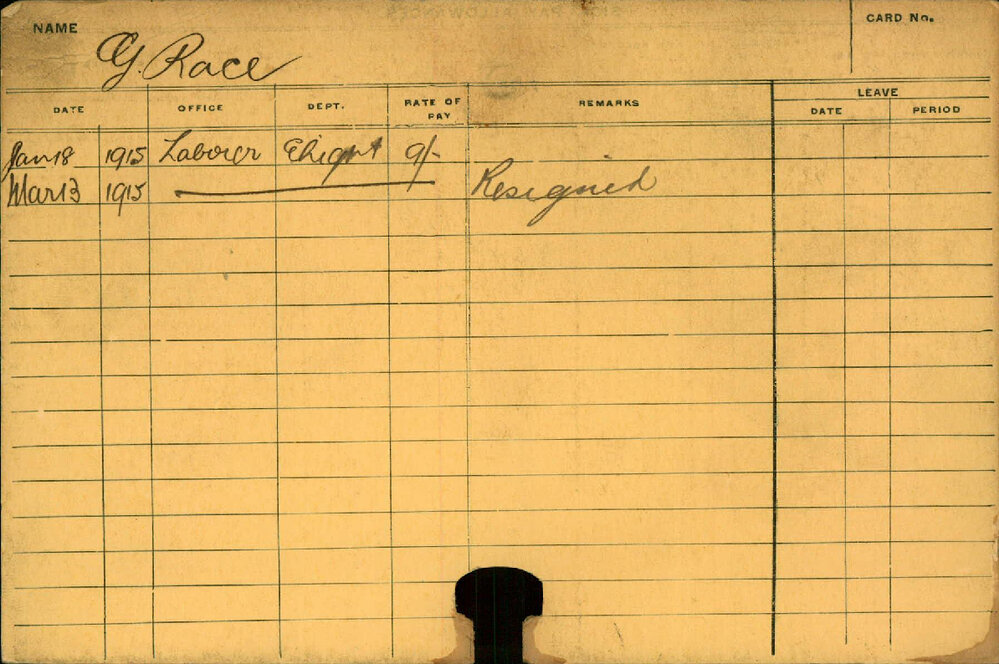 NAME G. Race CARD No.
DATE OFFICE DEPT. RATE OF PAY REMARKS LEAVE DATE PERIOD
Jan 18 1915 Laborer 9/-
Mar 13 1915 Resigned